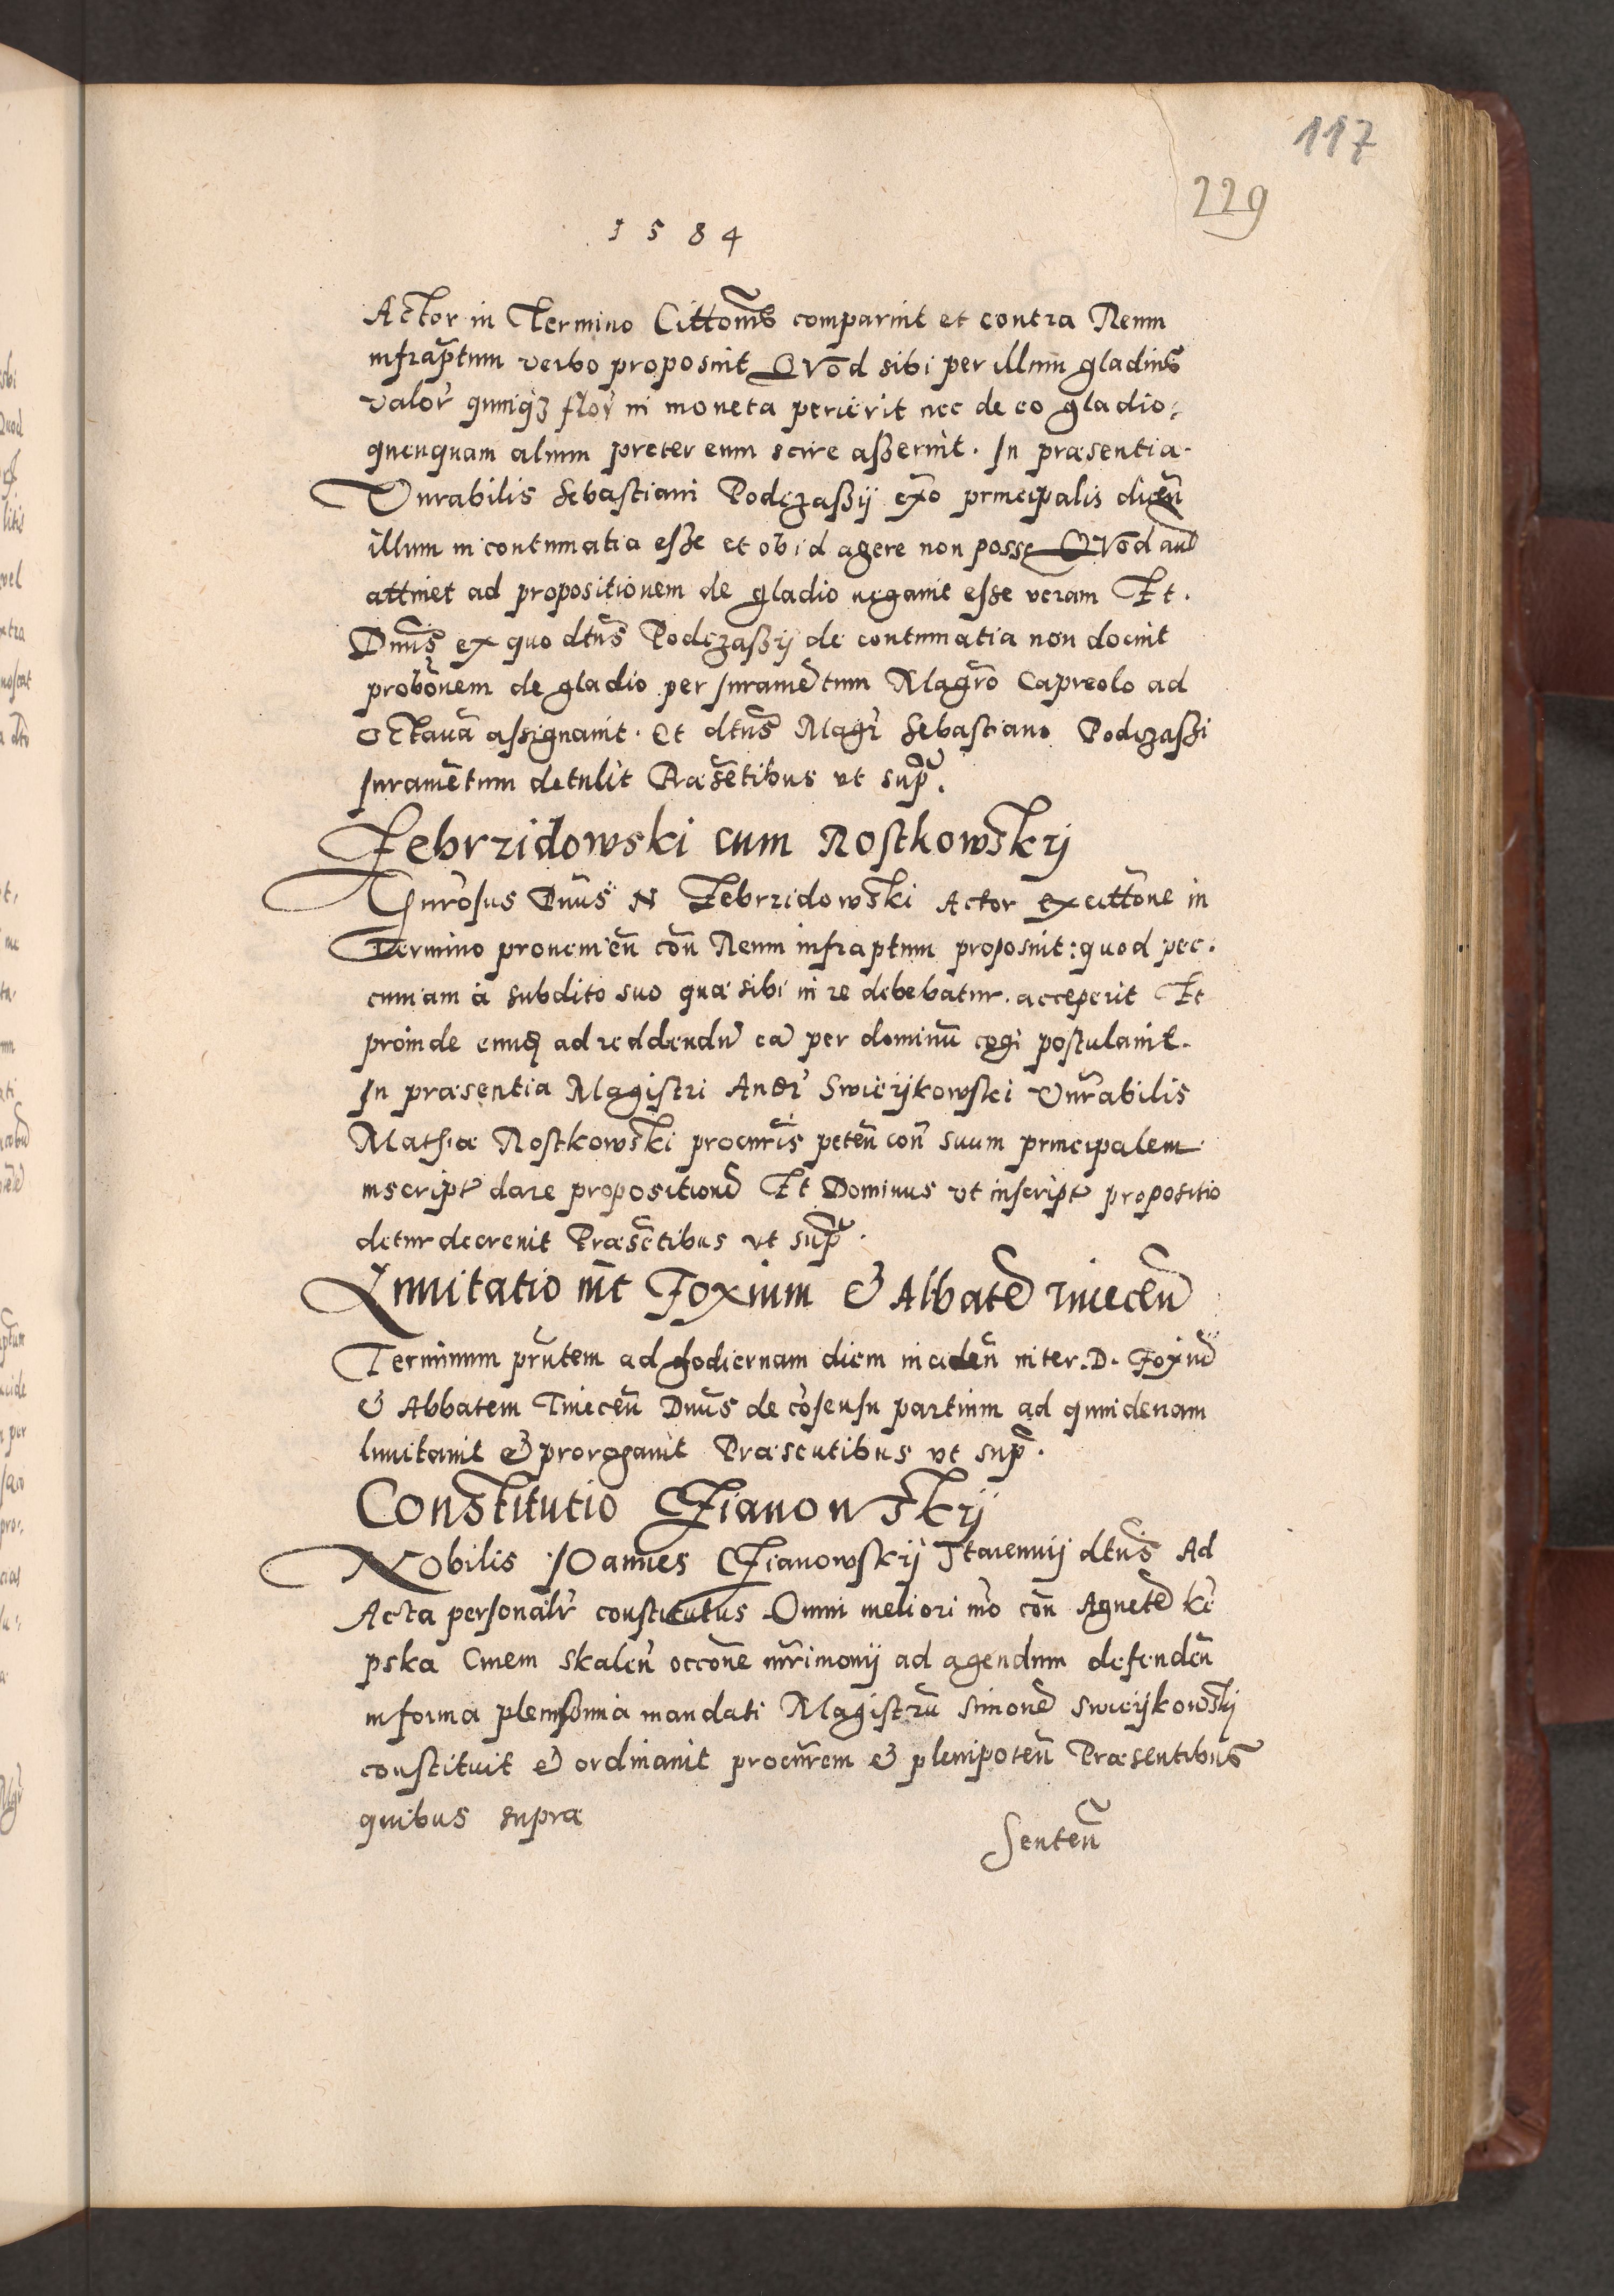 117
229
1584
Actor in Termino Cittonis comparuit et contra Reum
infraptum verbo proposuit Quod sibi per illum gladius
valor quinqz flor in moneta perierit nec de eo gladio
quenquam alium preter eum scire asseruit. In præsentia
Vnrabilis Sebastiani Podczaßij exo principalis dicen
illum in contumatia esse et ob id agere non posse Quod aut
attinet ad propositionem de gladio negauit esse veram Et.
Dnus ex quo dtus Podczaßij de contumatia non docuit
probonem de gladio per Juramentum Magro Capreolo ad
Octaua assignauit. Et dtus Magr Sebastiano Podczaßi
Juramentum detulit Præsentibus vt sup.
Zebrzidowski cum Rostkowskij
Gnrosus Dnus N Zebrzidowski Actor ex cittone in
Termino prouenien con Reum infraptum proposuit: quod pec
cuniam a subdito suo quæ sibi in re debebatur acceperit Et
proinde eum ad reddendu ea per dominu cogi postulauit.
In præsentia Magistri Andr Swieijkowski Vnrabilis
Mathiæ Rostkowski procuris peten con suum principalem
inscript dare propositione Et Dominus vt inscript propositio
detur decreuit Præsentibus vt sup.
Limitatio int Foxium & Abbate Tinecen
Terminum prntem ad hodiernam diem inciden inter D. Foxiu
& Abbatem Tinecen Dnus de cosensu partium ad quindenam
limitauit & prorogauit Præsentibus vt sup.
Constitutio Chianowskij
Nobilis Joannes Chianowskij dtus Ad
Acta personalr constitutus Omni meliori mo con Agnete Ke
pska Ciuem Skalen occone mrimonij ad agendum defenden
in forma plenissima mandati Magistru Simone Swieijkowskij
constituit & ordinauit procurem & plenipoten Præsentibus
quibus supra
Senten